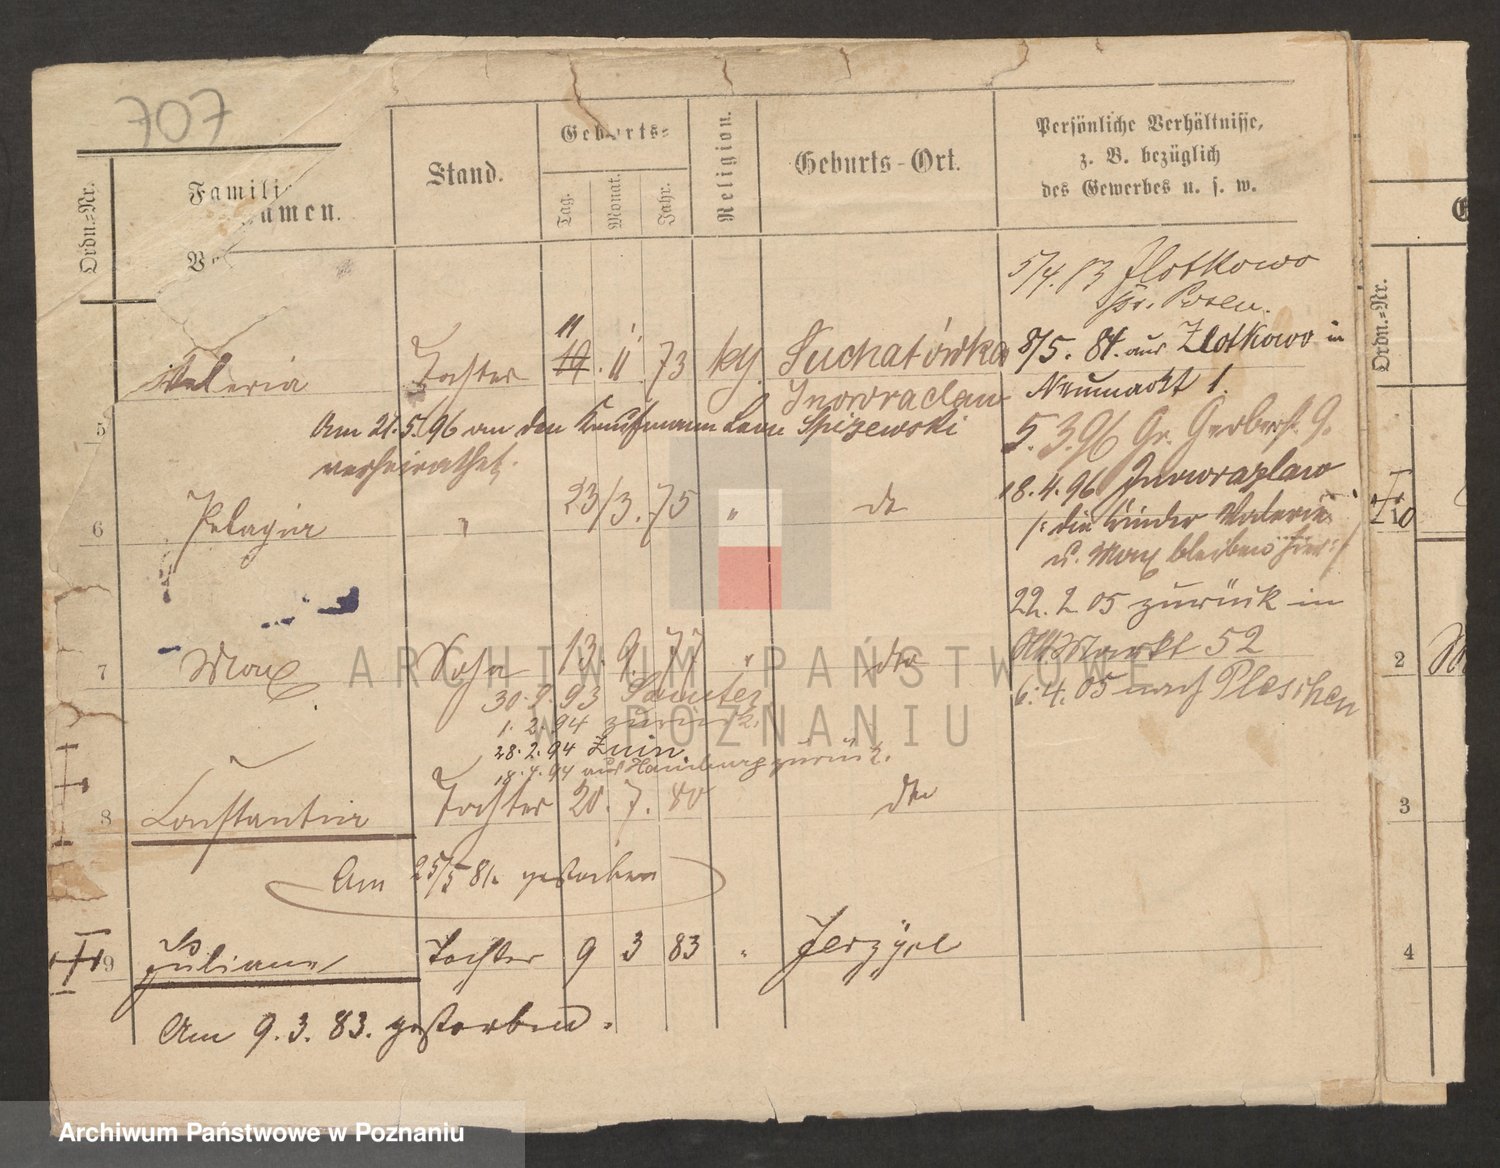 707
Ordn.-Nr.
Famili
amen.
Stand.
Geburts-
Tag.
Monat.
Jahr.
Religion.
Geburts-Ort.
Persönliche Verhältnisse,
z. B. bezüglich
des Gewerbes u. s. w.
5/4. 83 Zlotkowo
Kr. Posen.
11
Valeria Tochter 19. 11 73 kg. Suchatówka 8/5. 84. aus Zlotkowo in
Inowraclaw Neumarkt 1.
5 Am 21.5.96 an den Kaufmann Leon Spizewski 5. 3. 96 Gr. Gerberst. 9.
verheirathet. 18.4.96 Inowrazlaw
6 Pelagia " 23/3. 75 " do
/: die Kinder Valerie
u. Max bleiben hier :/
22. 2. 05 zurück in
7 Max Sohn 13. 9. 77 " dto Alt. Markt 52
30.9.93 Samter 6. 4. 05 nach Pleschen
1. 2. 94 zurück.
28. 2. 94 Znin
18. 4. 94 aus Hamburg zurück.
8 Constantia Tochter 20. 7. 80 dto
Am 25/5 81. gestorben
9 Juliane Tochter 9 3 83 " Jerzyce
Am 9. 3. 83. gestorben.
Ordn.-Nr.
2
3
4
ARCHIWUM PAŃSTWOWE
W POZNANIU
Archiwum Państwowe w Poznaniu